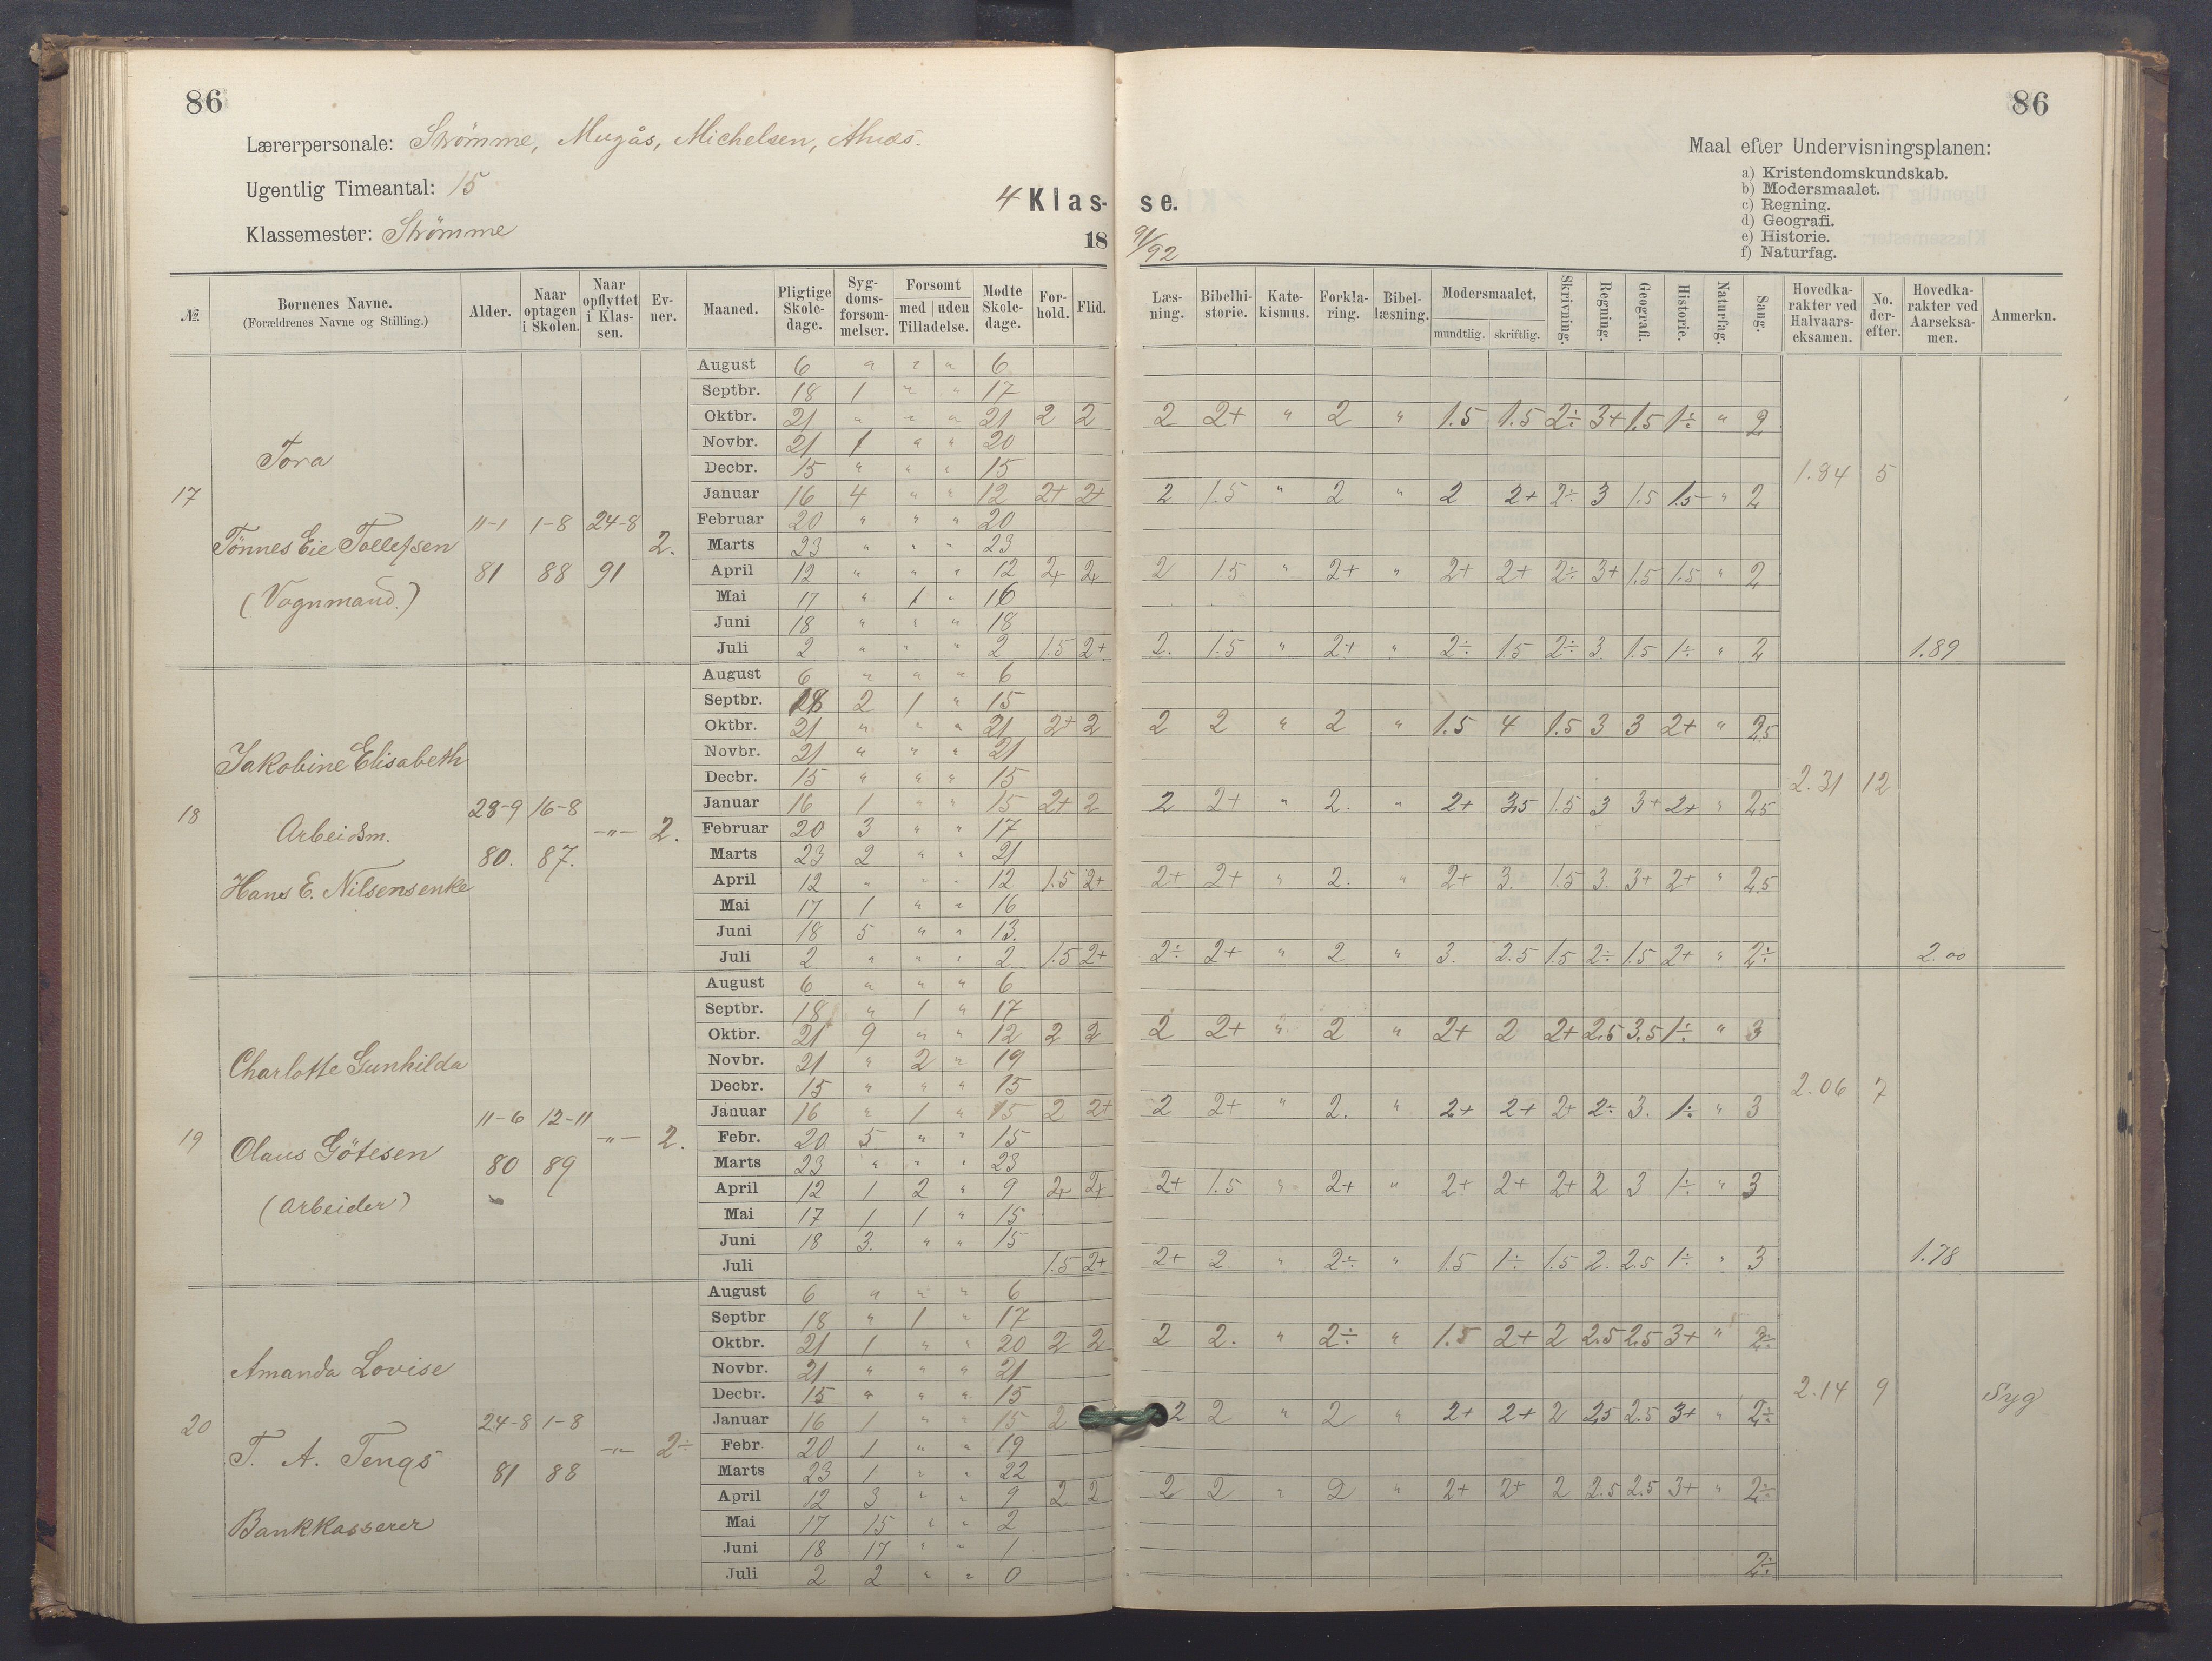 86
Lærerpersonale: Strømme, Mugås, Michelsen,
Ugentlig Timeantal: 15
Klassemester: Strømme
4 Klas-
18
№. Børnenes Navne. (Forældrenes Navne og Stilling.) Alder. Naar optagen i Skolen. Naar opflyttet i Klassen. Evner. Maaned. Pligtige Skoledage. Sygdomsforsømmelser. Forsømt med | uden Tilladelse. Mødte Skoledage. Forhold. Flid.
86
Maal efter Undervisningsplanen:
a) Kristendomskundskab.
b) Modersmaalet.
c) Regning.
d) Geografi.
e) Historie.
f) Naturfag.
se.
91/92
Læsning. Bibelhistorie. Katekismus. Forklaring. Bibellæsning. Modersmaalet, mundtlig. skriftlig. Skrivning. Regning. Geografi. Historie. Naturfag. Sang. Hovedkarakter ved Halvaarseksamen. No. derefter. Hovedkarakter ved Aarseksamen. Anmerkn.
17
Tora
Tönnes Eie Tollefsen
(Vognmand.)
11-1 81
1-8 88
24-8 91
2.
August 6 " " " 6
Septbr. 18 1 " " 17
Oktbr. 21 " " " 21 2 2 2 2+ " 2 " 1.5 1.5 2÷ 3+ 1.5 1÷ " 2
Novbr. 21 1 " " 20
Decbr. 15 " " " 15
1.84 5
Januar 16 4 " " 12 2+ 2+ 2 1.5 " 2 " 2 2+ 2÷ 3 1.5 1.5 " 2
Februar 20 " " " 20
Marts 23 " " " 23
April 12 " " " 12 2+ 2+ 2 1.5 " 2+ " 2+ 2+ 2÷ 3+ 1.5 1.5 " 2
Mai 17 " 1 " 16
Juni 18 " " " 18
Juli 2 " " " 2 1.5 2+ 2. 1.5 " 2+ " 2÷ 1.5 2÷ 3. 1.5 1÷ " 2 1.89
18
Jakobine Elisabeth
Arbeidsm.
Hans E. Nilsensenke
28-9 80.
16-8 87.
-"-
2.
August 6 " " " 6
Septbr. 18 2 1 " 15
Oktbr. 21 " " " 21 2+ 2 2 2 " 2 " 1.5 4 1.5 3 3 2+ " 2.5
Novbr. 21 " " " 21
Decbr. 15 " " " 15
2.31 12
Januar 16 1 " " 15 2+ 2 2 2+ " 2. " 2+ 3.5 1.5 3 3+ 2+ " 2.5
Februar 20 3 " " 17
Marts 23 2 " " 21
April 12 " " " 12 1.5 2+ 2+ 2+ " 2. " 2+ 3. 1.5 3. 3+ 2+ " 2.5
Mai 17 1 " " 16
Juni 18 5 " " 13.
Juli 2 " " " 2 1.5 2+ 2÷ 2+ " 2 " 3. 2.5 1.5 2÷ 1.5 2+ " 2÷ 2.00
19
Charlotte Gunhilda
Olaus Götesen
(Arbeider)
11-6 80
12-11 89
-"-
2.
August 6 " " " 6
Septbr. 18 " 1 " 17
Oktbr. 21 9 " " 12 2 2 2 2+ " 2 " 2+ 2 2+ 2.5 3.5 1÷ " 3
Novbr. 21 " 2 " 19
Decbr. 15 " " " 15
2.06 7
Januar 16 " 1 " 15 2 2+ 2 2+ " 2. " 2+ 2+ 2+ 2÷ 3. 1÷ " 3
Febr. 20 5 " " 15
Marts 23 " " " 23
April 12 1 2 " 9 2+ 2+ 2+ 1.5 " 2+ " 2+ 2+ 2+ 2 3 1÷ " 3
Mai 17 1 1 " 15
Juni 18 3. " " 15
Juli 1.5 2+ 2+ 2. " 2÷ " 1.5 1÷ 1.5 2. 2.5 1÷ " 3 1.78
20
Amanda Lovise
T. A. Tengs
Bankkasserer
24-8 81
1-8 88
-"-
2÷
August 6 " " " 6
Septbr 18 " 1 " 17
Oktbr. 21 1 " " 20 2 2 2 2. " 2÷ " 1.5 2+ 2 2.5 2.5 3+ " 2÷
Novbr. 21 " " " 21
Decbr. 15 " " " 15
2.14 9 Syg
Januar 16 1 " " 15 2 2 2 " 2 " 2+ 2+ 2 2.5 2.5 3+ " 2÷
Febr 20 1 " " 19
Marts 23 1 " " 22
April 12 3 " " 9 2 2 2 2 " 2 " 2+ 2+ 2 2.5 2.5 3+ " 2÷
Mai 17 15 " " 2
Juni 18 17 " " 1
Juli 2 2 " " 0 2÷